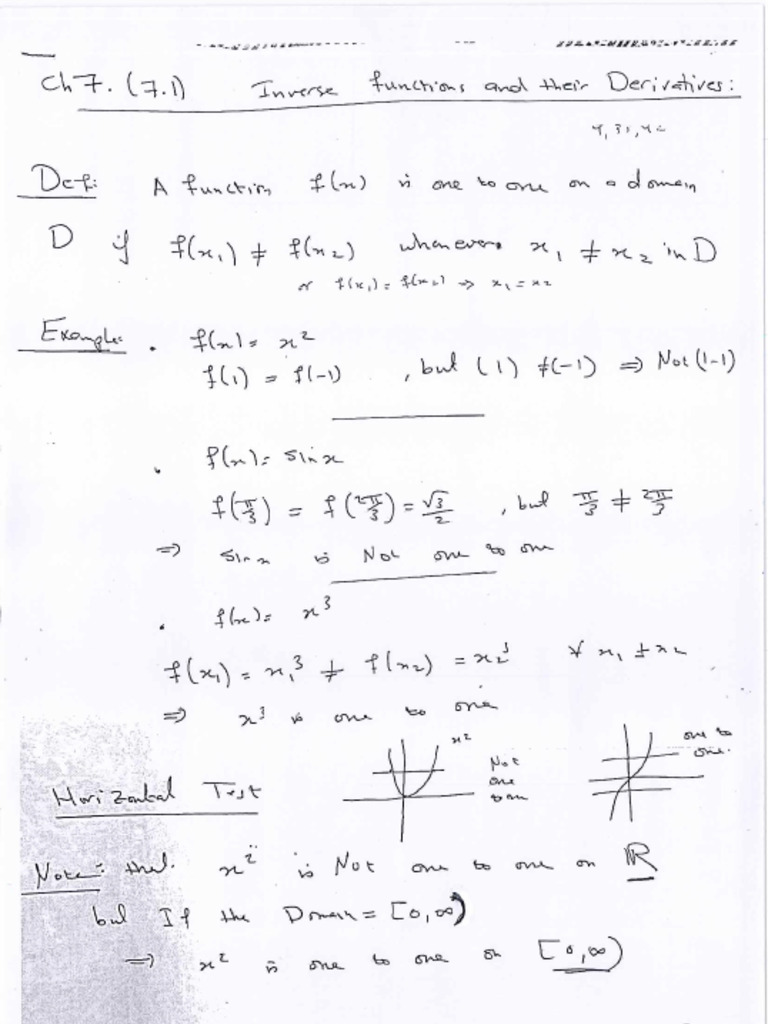 Ch 7. (7.1) Inverse functions and their Derivatives:
Def: A function f(x) is one to one on a domain
D if f(x₁) ≠ f(x₂) whenever x₁ ≠ x₂ in D
or f(x₁) = f(x₂) ⇒ x₁ = x₂
Example: • f(x) = x²
f(1) = f(-1) , but (1) ≠ (-1) ⇒ Not (1-1)
• f(x) = sin x
f(π/3) = f(2π/3) = √3/2 , but π/3 ≠ 2π/3
⇒ sin x is Not one to one
• f(x) = x³
f(x₁) = x₁³ ≠ f(x₂) = x₂³ ∀ x₁ ≠ x₂
⇒ x³ is one to one
Horizontal Test
x²
Not
one
to one
one to
one.
Note: that x² is Not one to one on ℝ
but If the Domain = [0,∞)
⇒ x² is one to one on [0,∞)